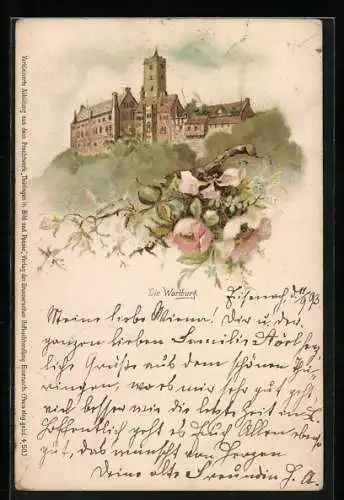 Verkleinerte Abbildung aus dem Prachtwerk „Thüringen in Bild und Poesie", Verlag der Hofbuchhandlung, Eisenach. (Preis eleg. gebd. 4,50.)
Die Wartburg
Eisenach d. 11/9 93
Meine liebe Miena! Dir u. der
ganzen lieben Familie herz
liche Grüße aus dem schönen Thü
ringen, wo es mir sehr gut geht,
viel besser wie die letzte Zeit in L.
Hoffentlich geht es Euch Allen ebenso
gut, das wünscht von Herzen
Deine alte Freundin J. A.